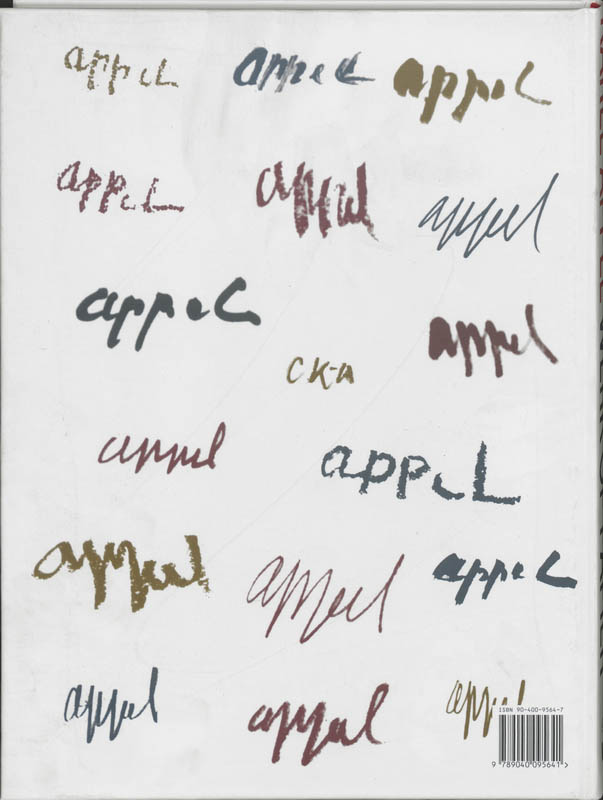 appel appel appel
appel appel appel
appel appel
CKA
appel appel
appel appel appel
appel appel appel
ISBN 90-400-9564-7
9 789040 095641 >